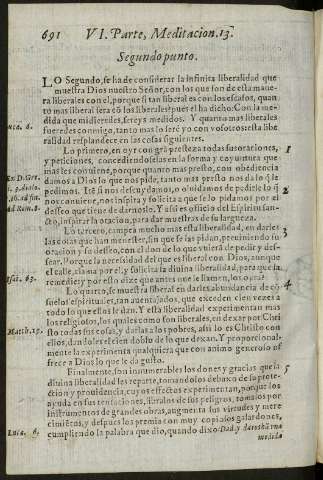 691 VI. Parte, Meditacion. 13.
Segundo punto.
LO Segundo, se ha de considerar la infinita liberalidad que
muestra Dios nuestro Señor, con los que son de esta mane-
ra liberales con el, porque si tan liberal es con los escasos, quan-
to mas liberal sera cō los liberales? pues el ha dicho: Con la me-
dida que midieredes, sereys medidos. Y quanto mas liberales
Luca. 6.
fueredes conmigo, tanto mas lo seré yo con vosotros: esta libe-
ralidad resplandece en las cosas siguientes.
Lo primero, en oyr con grā presteza todas sus oraciones,
1
y peticiones, concediendoselas en la forma y coyuntura que
mas les conuiene, porque quanto mas presto, con obediencia
damos a Dios lo que nos pide, tanto mas presto nos da lo q̃ le
pedimos. Itē si nos descuydamos, o oluidamos de pedirle lo q̃
2
nos conuiene, nos inspira y solicita a que se lo pidamos por el
desseo que tiene de darnoslo. Y assi es oficio del Espiritu san-
cto, inspirar la oracion, para dar muestras de su largueza.
Lo tercero, campea mucho mas esta liberalidad, en darles
3
las cosas que han menester, sin que se las pidan, preuiniendo su
oracion y su desseo, con el don de lo que vuiera de pedir y des-
sear. Porque la necesidad del que es liberal con Dios, aunque
el calle, clama por el, y solicita la diuina liberalidad, para que la
remedie; y por esto dize que antes que le llamen, los oyra.
Isai. 65.
4
Lo quarto, se muestra liberal en darles abundancia de cō
suelos espirituales, tan auentajados, que exceden cien vezes a
todo lo que ellos le dan. Y esta liberalidad experimentan mas
los religiosos, los quales como son liberales, en dexar por Chri
sto todas sus cosas, y darlas a los pobres, assi lo es Christo con
Matth. 19.
ellos, dandoles el cien doblo de lo que dexan. Y proporcional-
mente la experimenta qualquiera que con animo generoso of
frece a Dios lo que le da gusto.
Finalmente, son innumerables los dones y gracias que la
5
diuina liberalidad les reparte, tomandolos debaxo de su prote-
ction y prouidencia, cuyos effectos experimentan, porque los
ayuda en sus tentaciones, libralos de sus peligros, tomalos por
instrumentos de grandes obras, augmenta sus virtudes y mere
cimientos, y despues los premia con muy copiosos galardones,
cumpliendo la palabra que dio, quando dixo: Dad y daroshā vna
Luca. 6.
medida